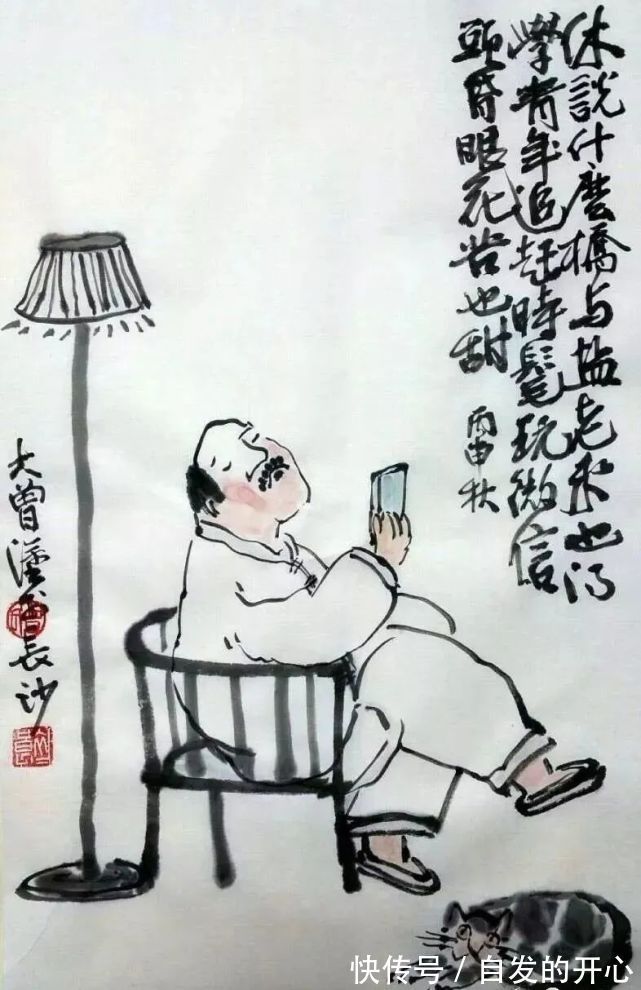 休說什麼橋与盐老来也得
學青年追赶時髦玩微信
頭昏眼花苦也甜
丙申秋
大曾長沙
快传号 / 自发的开心